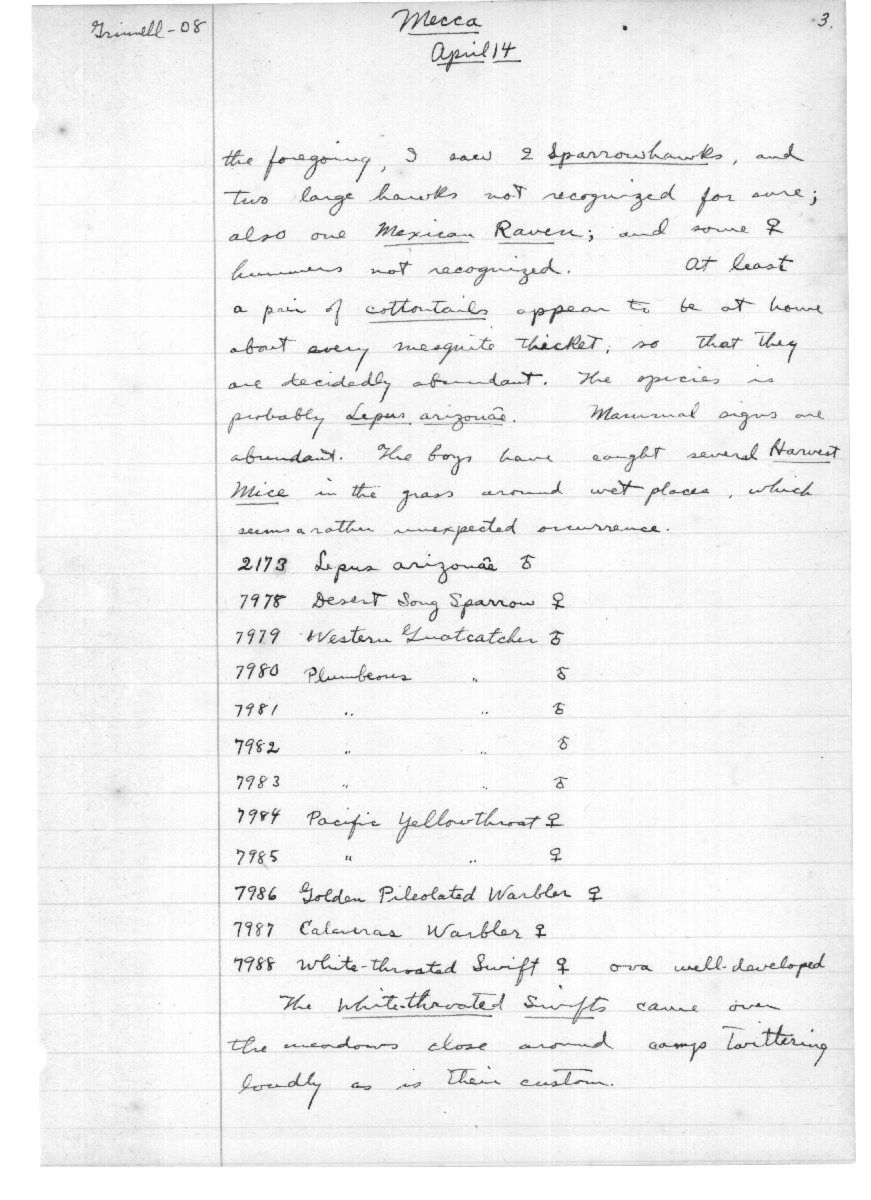 Grinnell-08
Mecca
April 14
3.
the foregoing, I saw 2 Sparrowhawks, and
two large hawks not recognized for sure;
also one Mexican Raven; and some ♀
hummers not recognized. At least
a pair of cottontails appear to be at home
about every mesquite thicket; so that they
are decidedly abundant. The species is
probably Lepus arizonæ. Mammal signs are
abundant. The boys have caught several Harvest
Mice in the grass around wet places, which
seems a rather unexpected occurrence.
2173 Lepus arizonæ ♂
7978 Desert Song Sparrow ♀
7979 Western Gnatcatcher ♂
7980 Plumbeous " ♂
7981 " " ♂
7982 " " ♂
7983 " " ♂
7984 Pacific Yellowthroat ♀
7985 " " ♀
7986 Golden Pileolated Warbler ♀
7987 Calaveras Warbler ♀
7988 White-throated Swift ♀ ova well-developed
The White-throated Swifts came over
the meadows close around camp twittering
loudly as is their custom.